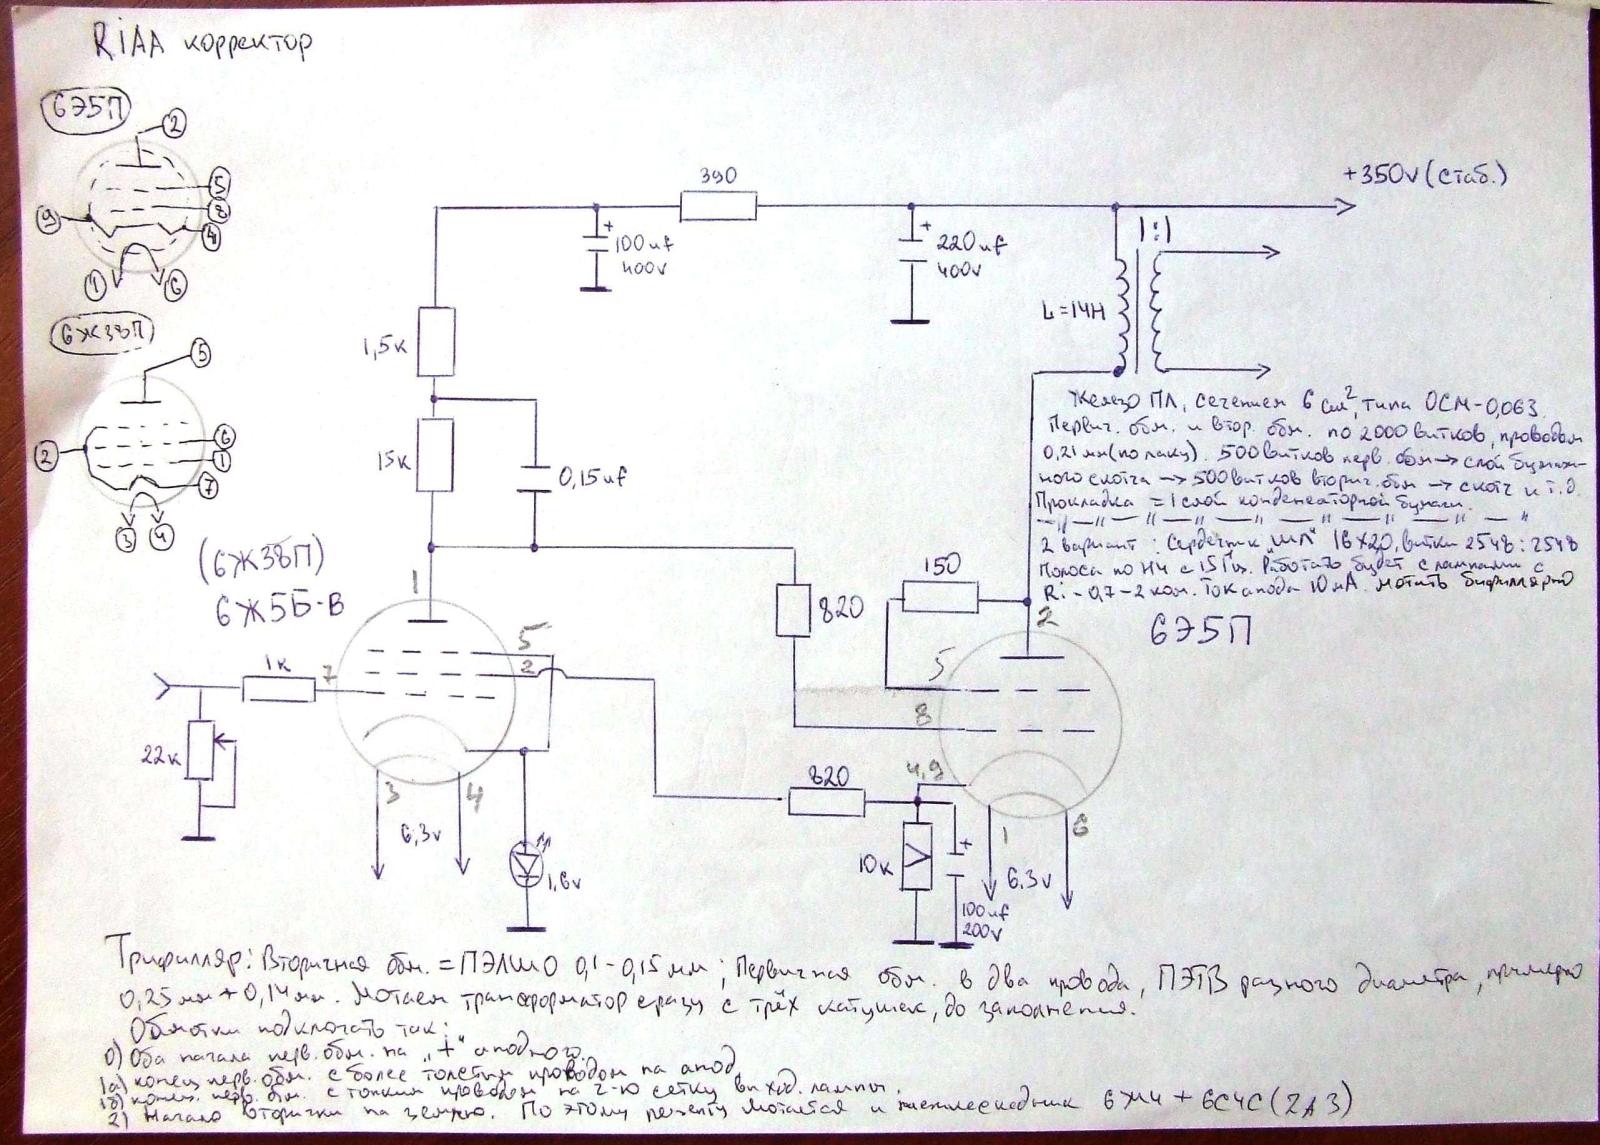 RiAA корректор
6Э5П
2
5
8
9
4
1
6
6Ж38П
5
6
1
2
7
3
4
390
+350v (стаб.)
+
100uf
400v
+
220uf
400v
1:1
L=14H
1,5к
15к
0,15uf
Железо ПЛ, сечением 6 см², типа ОСМ-0,063.
Первич. обм. и втор. обм. по 2000 витков, проводом
0,21 мм (по лаку). 500 витков перв. обм → слой бумаж-
ного скотча → 500 витков вторич. обм → скотч и т.д.
Прокладка = 1 слой конденсаторной бумаги.
2 вариант: Сердечник "ШЛ" 16х20, витки 2548:2548
Полоса по НЧ с 15 Гц. Работать будет с лампами с
Ri - 0,7-2 ком. Ток анода 10 мА. мотать бифиллярно
(6Ж38П)
6Ж5Б-В
1
150
820
2
6Э5П
1к
7
5
2
5
8
22к
3
4
6,3v
1,6v
820
4,9
10к
+
100uf
200v
1
6
6,3v
Трифилляр: Вторичная обм. = ПЭЛШО 0,1-0,15 мм; Первичная обм. в два провода, ПЭТВ разного диаметра, примерно
0,25 мм + 0,14 мм. Мотаем трансформатор сразу с трёх катушек, до заполнения.
Обмотки подключать так:
0) Оба начала перв. обм. на "+" анодного.
1а) конец перв. обм. с более толстым проводом на анод.
1б) конец перв. обм. с тонким проводом на 2-ю сетку выход. лампы.
2) Начало вторички на землю. По этому рецепту мотается и 6Ж4 + 6С4С (2А3)